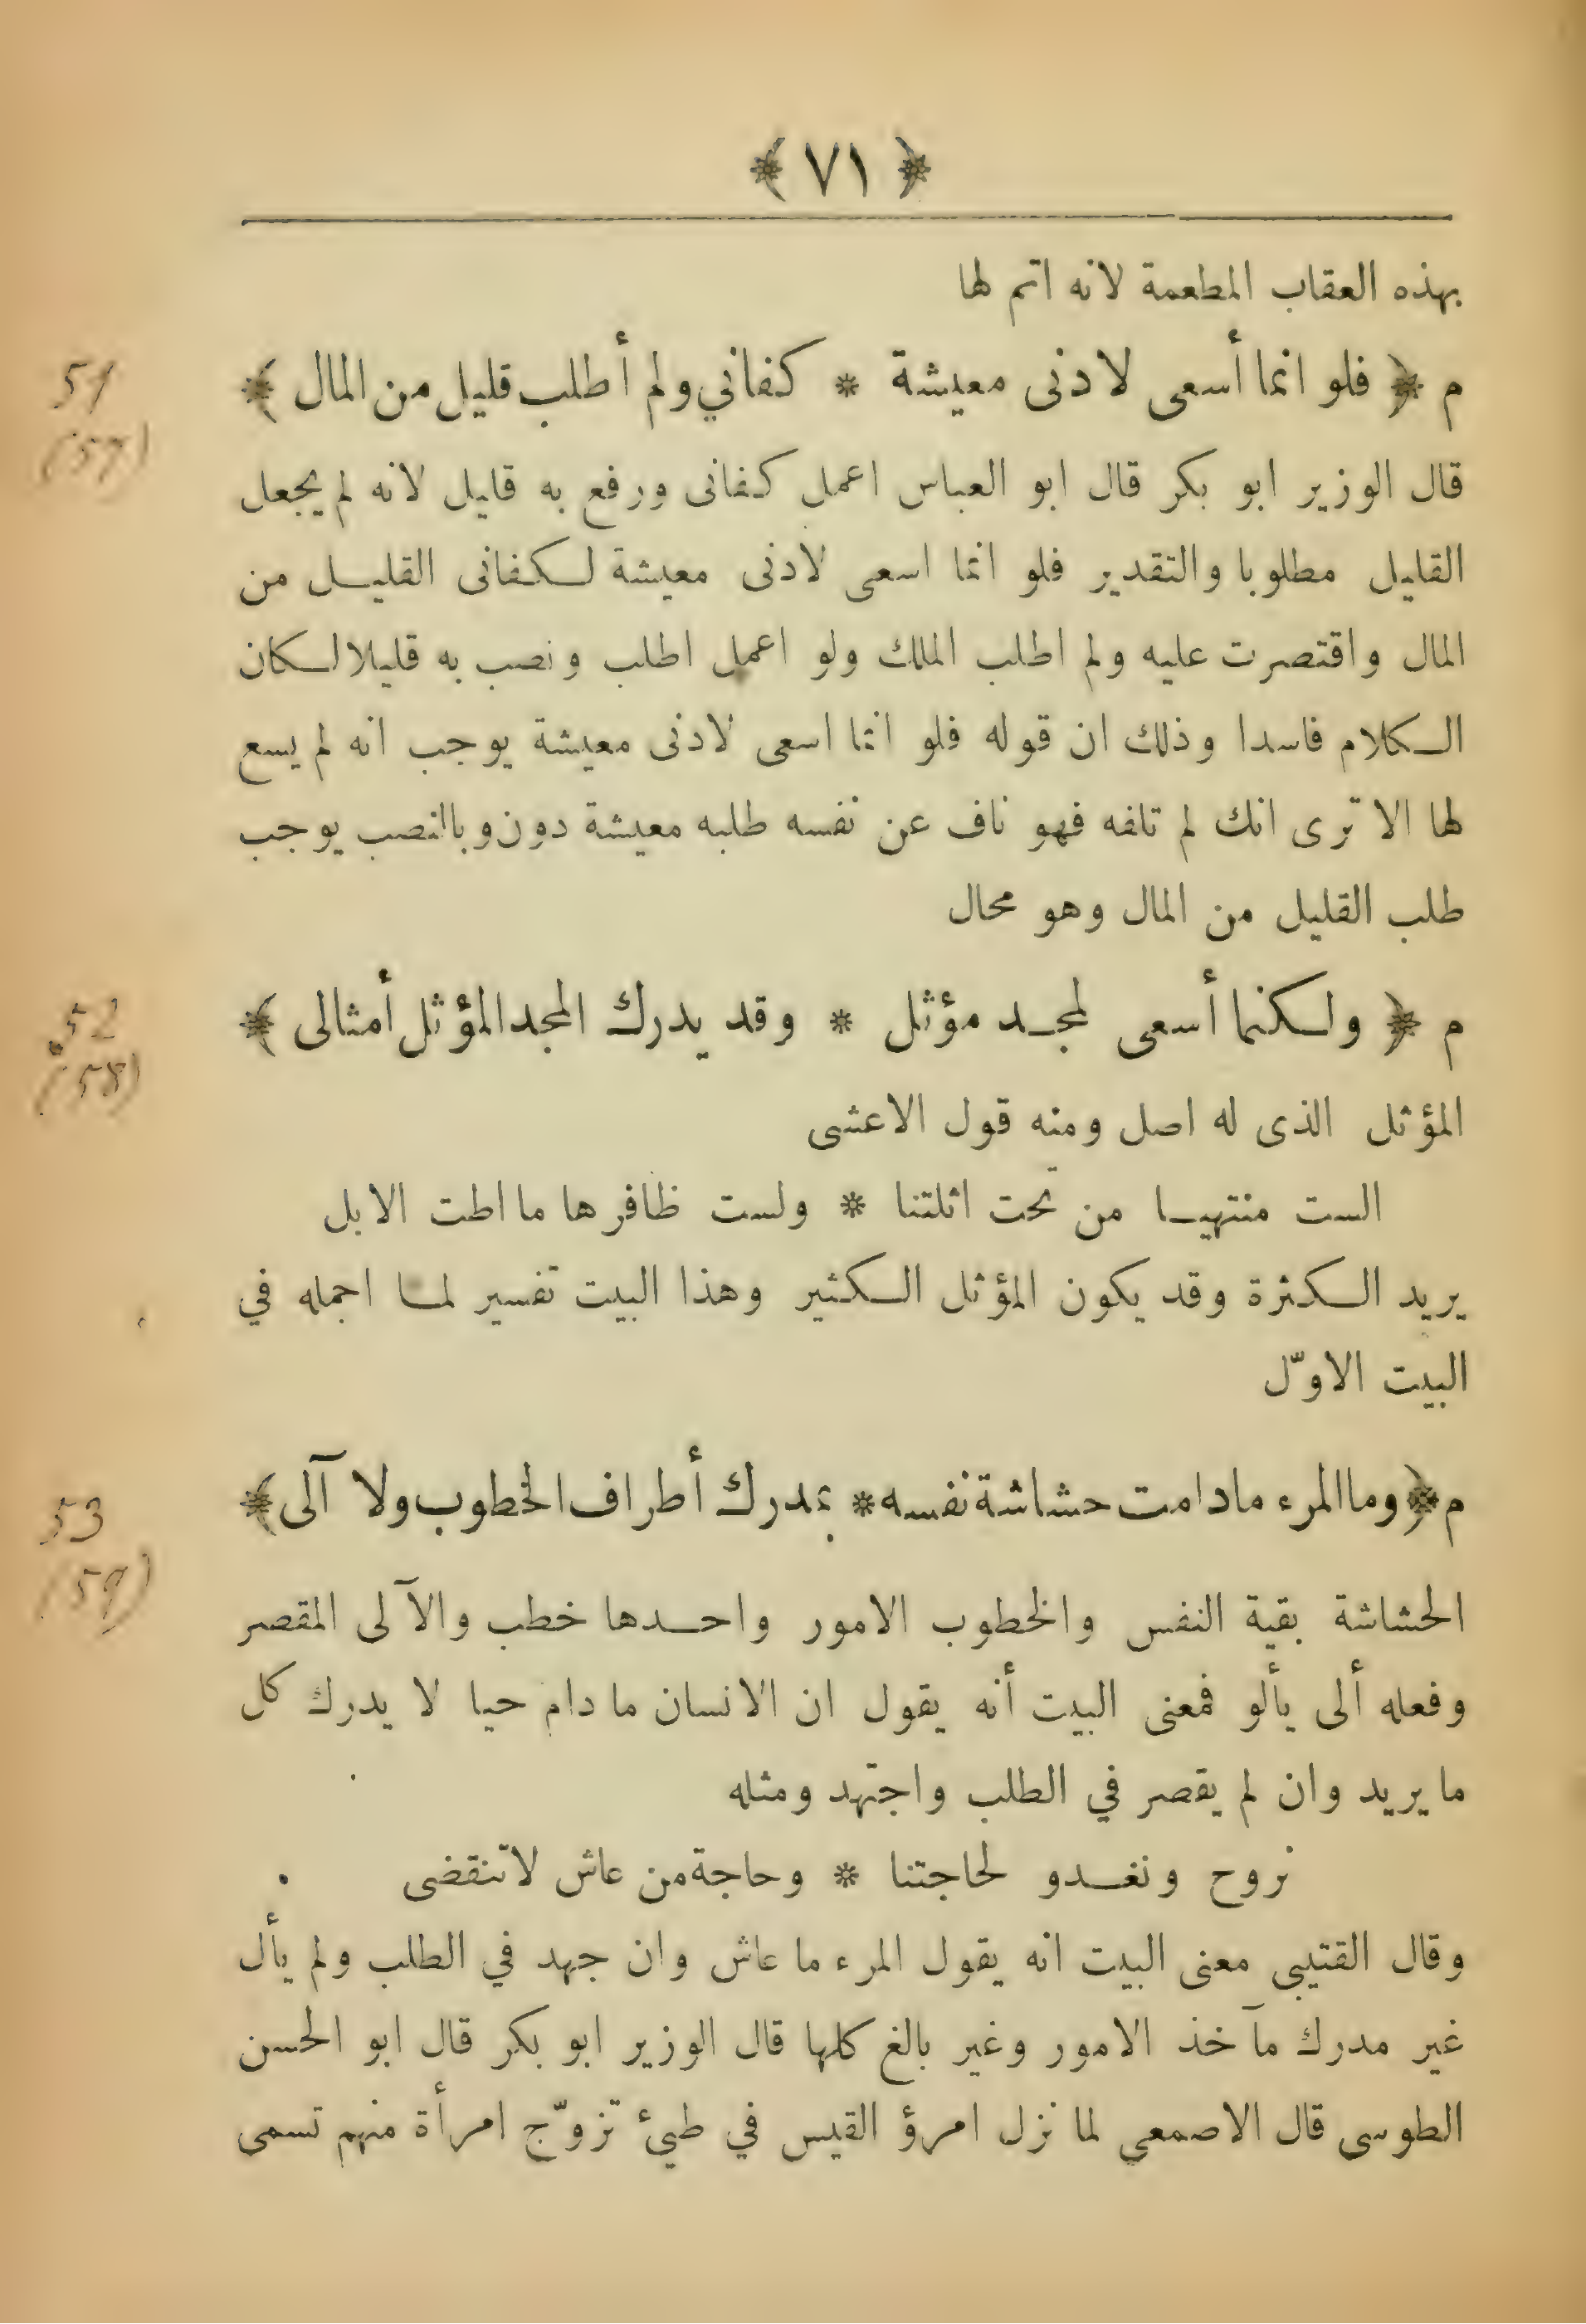 ﴿ ٧١ ﴾
بهذه العقاب المطعمة لانه اتم لها
م ﴿ فلو انما أسعى لادنى معيشة * كفاني ولم أطلب قليل من المال ﴾
51
(57)
قال الوزير ابو بكر قال ابو العباس اعمل كفانى ورفع به قليل لانه لم يجعل
القليل مطلوبا والتقدير فلو انما اسعى لادنى معيشة لكفانى القليل من
المال واقتصرت عليه ولم اطلب الملك ولو اعمل اطلب ونصب به قليلا لكان
الكلام فاسدا وذلك ان قوله فلو انما اسعى لادنى معيشة يوجب انه لم يسع
لها الا ترى انك لم تلفه فهو ناف عن نفسه طلبه معيشة دون وبالنصب يوجب
طلب القليل من المال وهو محال
م ﴿ ولكنما أسعى لمجد مؤثل * وقد يدرك المجد المؤثل أمثالى ﴾
52
(58)
المؤثل الذى له اصل ومنه قول الاعشى
الست منتهيا من تحت اثلتنا * ولست ظافرها ما اطت الابل
يريد الكثرة وقد يكون المؤثل الكثير وهذا البيت تفسير لما اجمله في
البيت الاوّل
م ﴿ وما المرء مادامت حشاشة نفسه * بمدرك أطراف الخطوب ولا آلى ﴾
53
(59)
الحشاشة بقية النفس والخطوب الامور واحدها خطب والآلى المقصر
وفعله ألى يألو فمعنى البيت أنه يقول ان الانسان ما دام حيا لا يدرك كل
ما يريد وان لم يقصر في الطلب واجتهد ومثله
نروح ونغدو لحاجتنا * وحاجة من عاش لاتنقضى
وقال القتيبى معنى البيت انه يقول المرء ما عاش وان جهد في الطلب ولم يأل
غير مدرك مآخذ الامور وغير بالغ كلها قال الوزير ابو بكر قال ابو الحسن
الطوسى قال الاصمعى لما نزل امرؤ القيس في طيئ تزوّج امرأة منهم تسمى